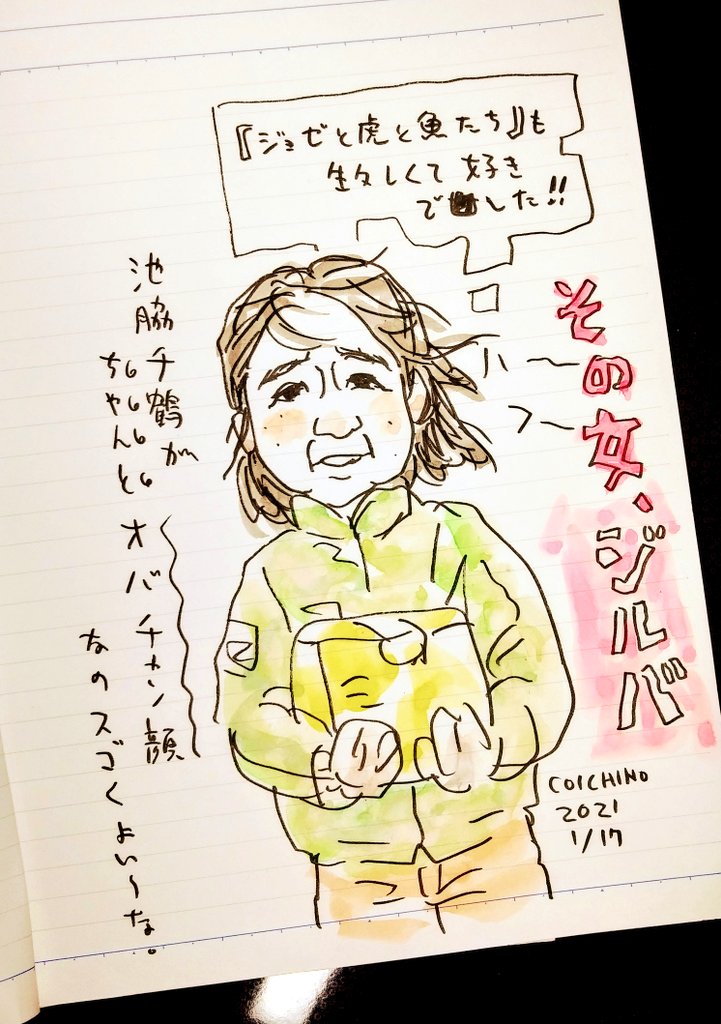 『ジョゼと虎と魚たち』も
生々しくて好き
でした!!
その女、ジルバ
ハ〜
フ〜
池脇千鶴が
ちゃんと
オバチャン顔
なのスゴくよい〜な。
COICHINO
2021
1/17